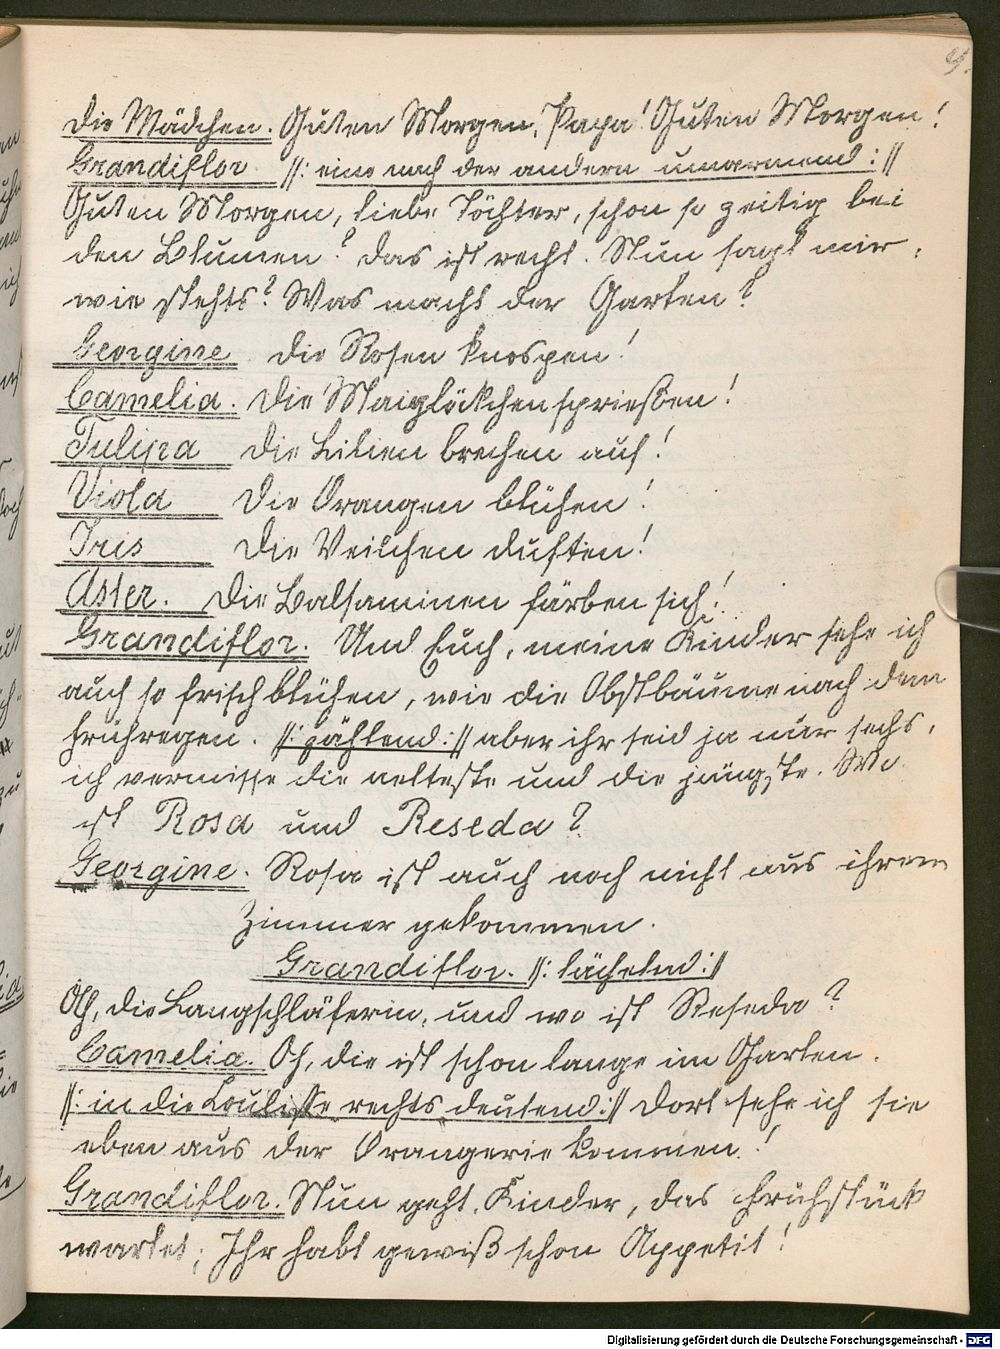 die Mädchen. Guten Morgen, Papa! Guten Morgen!
Grandiflor. //: eine nach der andern umarmend://
Guten Morgen, liebe Töchter, schon so zeitig bei
den Blumen? das ist recht. Nun sagt mir,
wie stehts? Was macht der Garten?
Georgine die Rosen knospen!
Camelia. die Maiglökchen sprießen!
Tulipa die Lilien brechen auf!
Viola Die Orangen blühen!
Iris Die Veilchen duften!
Aster. Die Balsaminen färben sich!
Grandiflor. Und Euch, meine Kinder sehe ich
auch so frisch blühen, wie die Obstbäume nach dem
Frühregen. //: zählend:// aber ihr seid ja nur sechs,
ich vermisse die aelteste und die jüngste. Wo
ist Rosa und Reseda?
Georgine. Rosa ist auch noch nicht aus ihrem
Zimmer gekommen.
Grandiflor. //: lächelnd://
Oh, die Langschläferin, und wo ist Reseda?
Camelia. Oh, die ist schon lange im Garten.
//: in die Coulisse rechts deutend:// dort sehe ich sie
eben aus der Orangerie kommen!
Grandiflor. Nun geht Kinder, das Frühstück
wartet; Ihr habt gewiß schon Appetit!
Digitalisierung gefördert durch die Deutsche Forschungsgemeinschaft - DFG